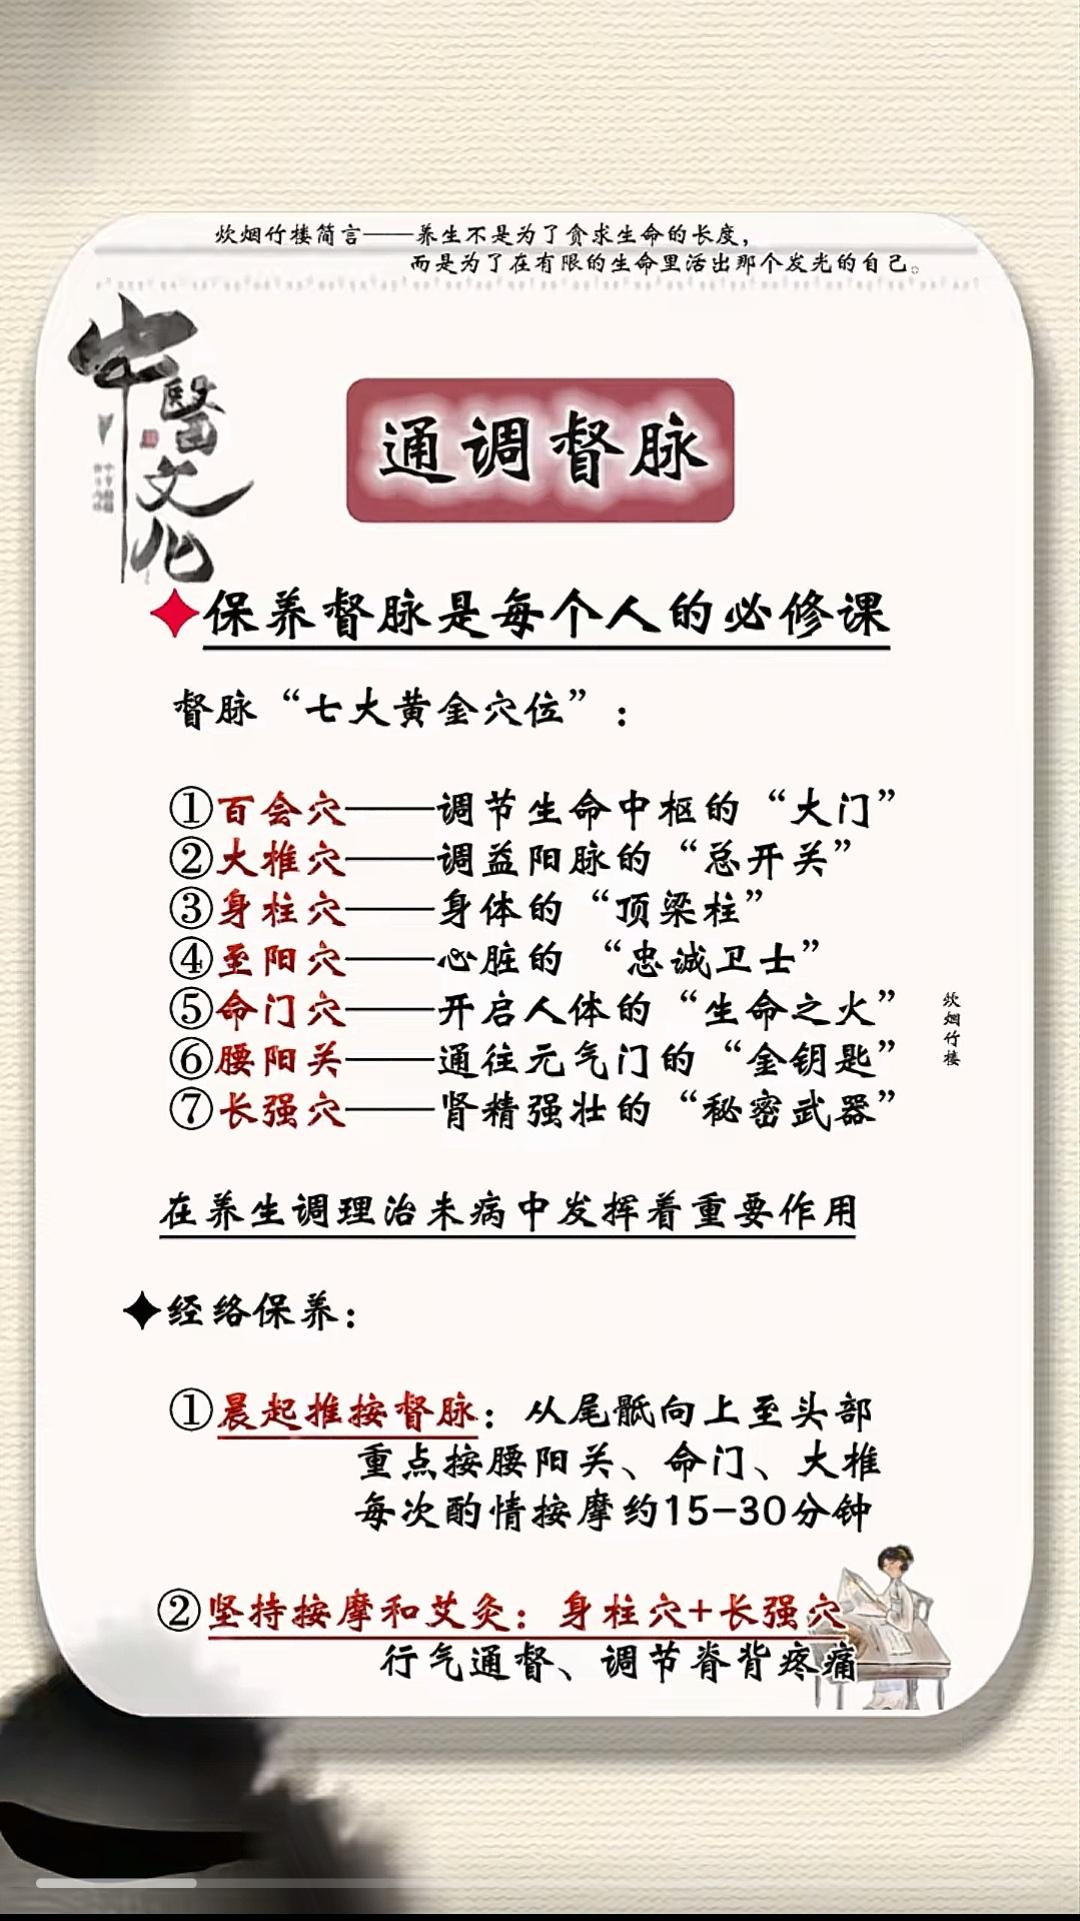 炊烟竹楼简言——养生不是为了贪求生命的长度，
而是为了在有限的生命里活出那个发光的自己。
中醫文化
通调督脉
保养督脉是每个人的必修课
督脉“七大黄金穴位”：
①百会穴——调节生命中枢的“大门”
②大椎穴——调益阳脉的“总开关”
③身柱穴——身体的“顶梁柱”
④至阳穴——心脏的“忠诚卫士”
⑤命门穴——开启人体的“生命之火”
⑥腰阳关——通往元气门的“金钥匙”
⑦长强穴——肾精强壮的“秘密武器”
炊烟竹楼
在养生调理治未病中发挥着重要作用
经络保养：
①晨起推按督脉：从尾骶向上至头部
重点按腰阳关、命门、大椎
每次酌情按摩约15-30分钟
②坚持按摩和艾灸：身柱穴+长强穴
行气通督、调节脊背疼痛